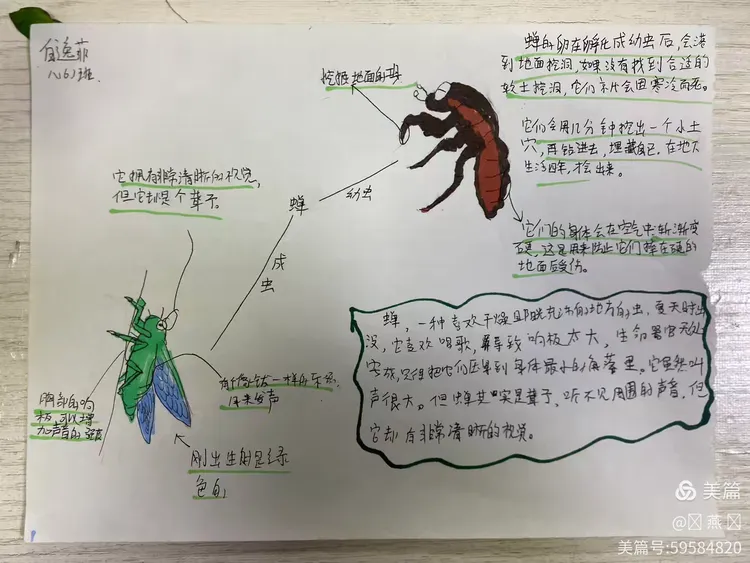 逸菲
八(6)班.
挖掘地面的
蝉的卵在孵化成幼虫后,会落
到地面挖洞,如果没有找到合适的
软土挖洞,它们就会因寒冷而死。
它们会用几分钟挖出一个小土
穴,再钻进去,埋藏自己,在地下
生活四年,才会出来。
它们的身体会在空气中渐渐变
硬,这是用来防止它们摔在硬的
地面后受伤。
它拥有非常清晰的视觉,
但它却是个聋子
蝉
幼虫
成虫
有像钹一样的东西,
用来发声
刚出生的是绿
色的
加声音的强度
蝉,一种喜欢干燥且阳光充沛的地方的虫,夏天时出
没,它喜欢唱歌,导致响板太大,生命器官无处
安放,只得把它们压早到身体最小的角落里。它虽然叫
声很大。但蝉其实是聋子,听不见周围的声音,但
它却有非常清晰的视觉。
美篇
@燕
美篇号:59584820